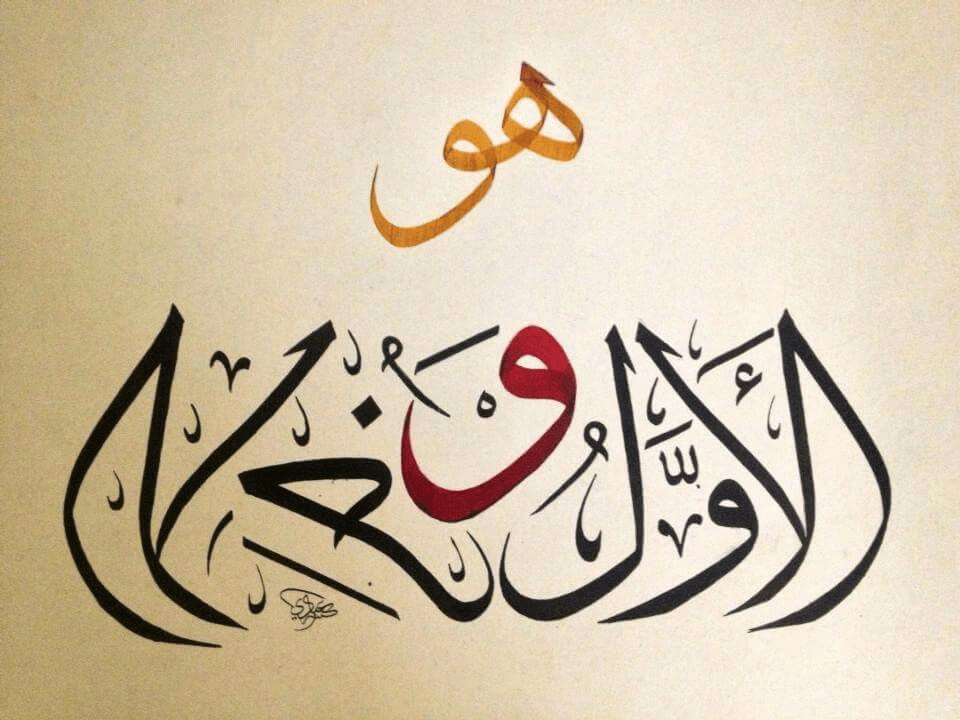 هو
الأَوَّلُ وَالآخِرُ